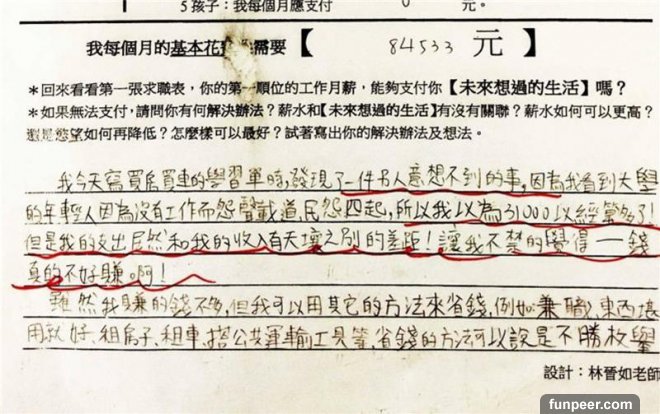 5 孩子：我每個月應支付 0 元。
我每個月的基本花 需要【 84533 元】
＊回來看看第一張求職表，你的第一順位的工作月薪，能夠支付你【未來想過的生活】嗎？
＊如果無法支付，請問你有何解決辦法？薪水和【未來想過的生活】有沒有關聯？薪水如何可以更高？
還是慾望如何再降低？怎麼樣可以最好？試著寫出你的解決辦法及想法。
我今天寫買房買車的學習單時，發現了一件另人意想不到的事，因為我看到大學
的年輕人因為沒有工作而怨聲載道，民怨四起，所以我以為31000以經算多了！
但是我的支出居然和我的收入有天壤之別的差距！讓我不禁的覺得一錢
真的不好賺。啊！
雖然我賺的錢不多，但我可以用其它的方法來省錢，例如兼職、東西堪
用就好、租房子、租車、搭公共運輸工具等，省錢的方法可以說是不勝枚舉
設計：林晉如老師
funpeer.com